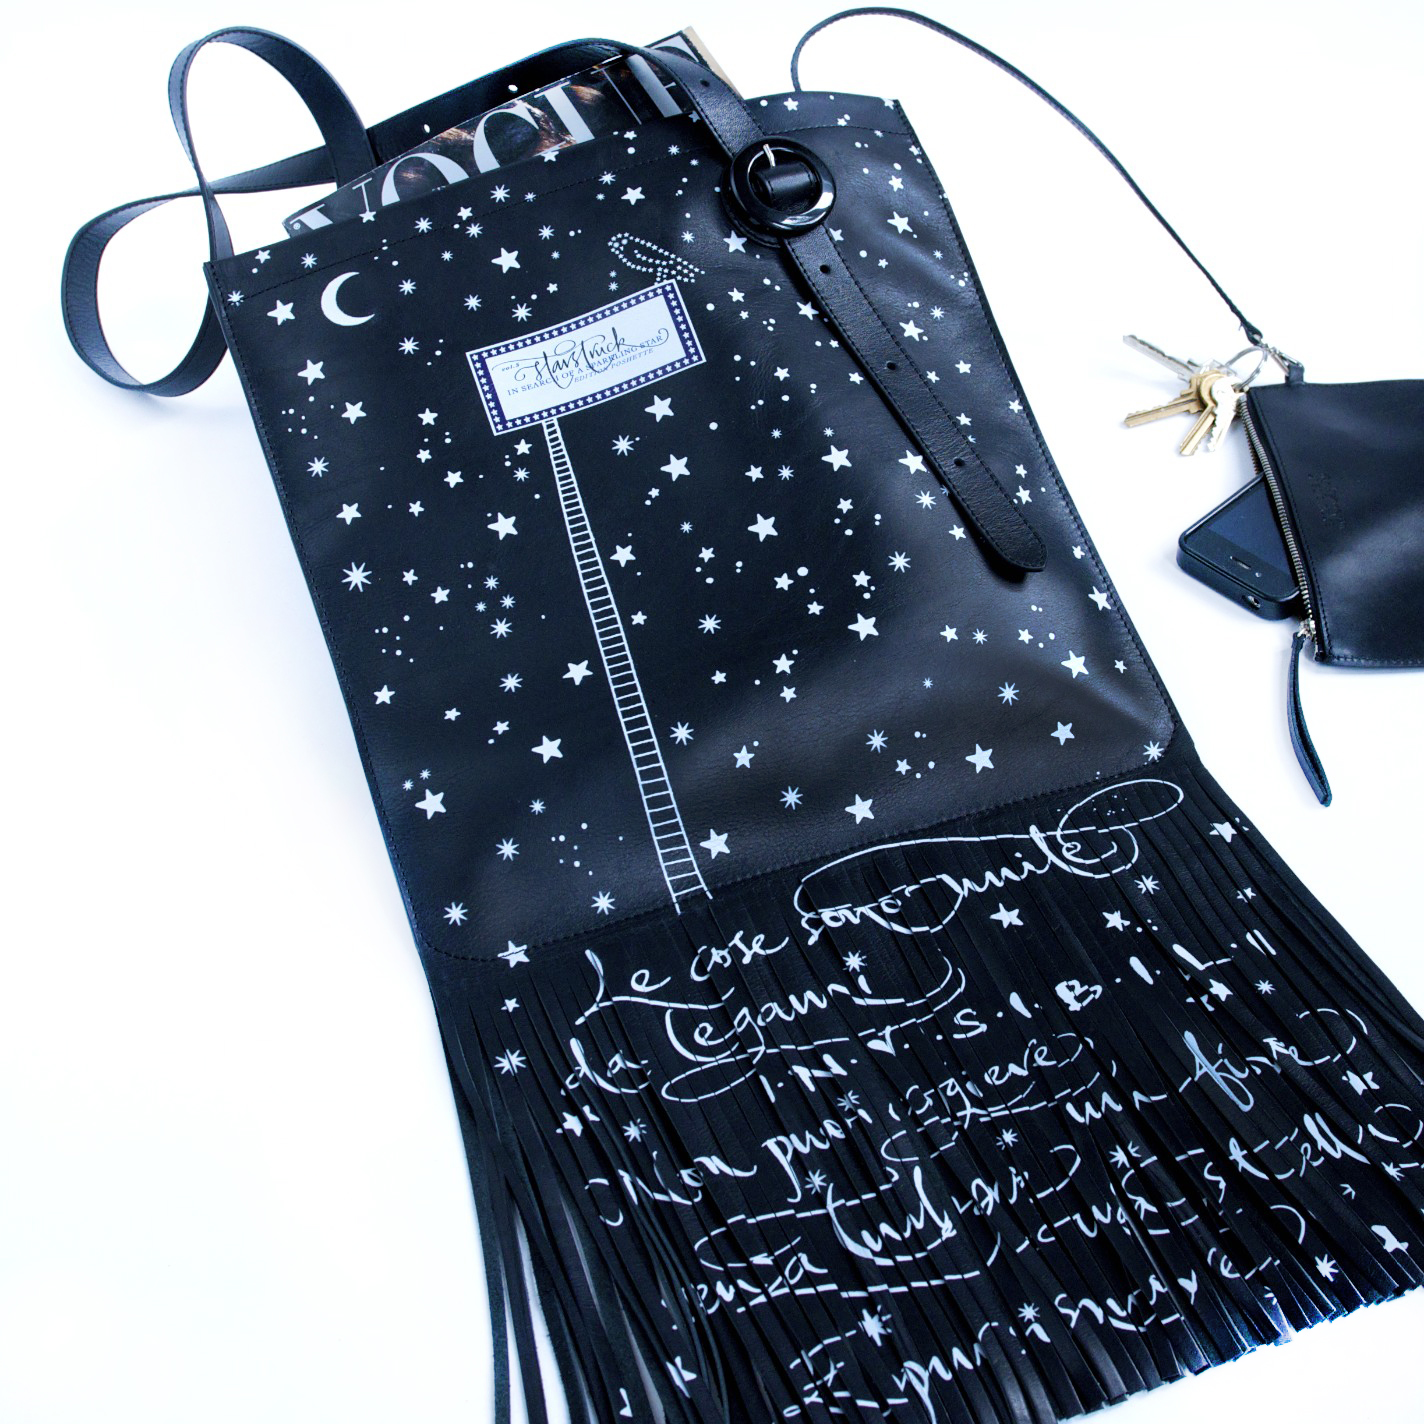 VOGUE
vol.2 starstruck
IN SEARCH OF A SPARKLING STAR
EDITION POSHETTE
Le cose sono unite
da legami
I.N.V.I.S.I.B.I.L.I
Non puoi cogliere un fiore
senza turbare una stella